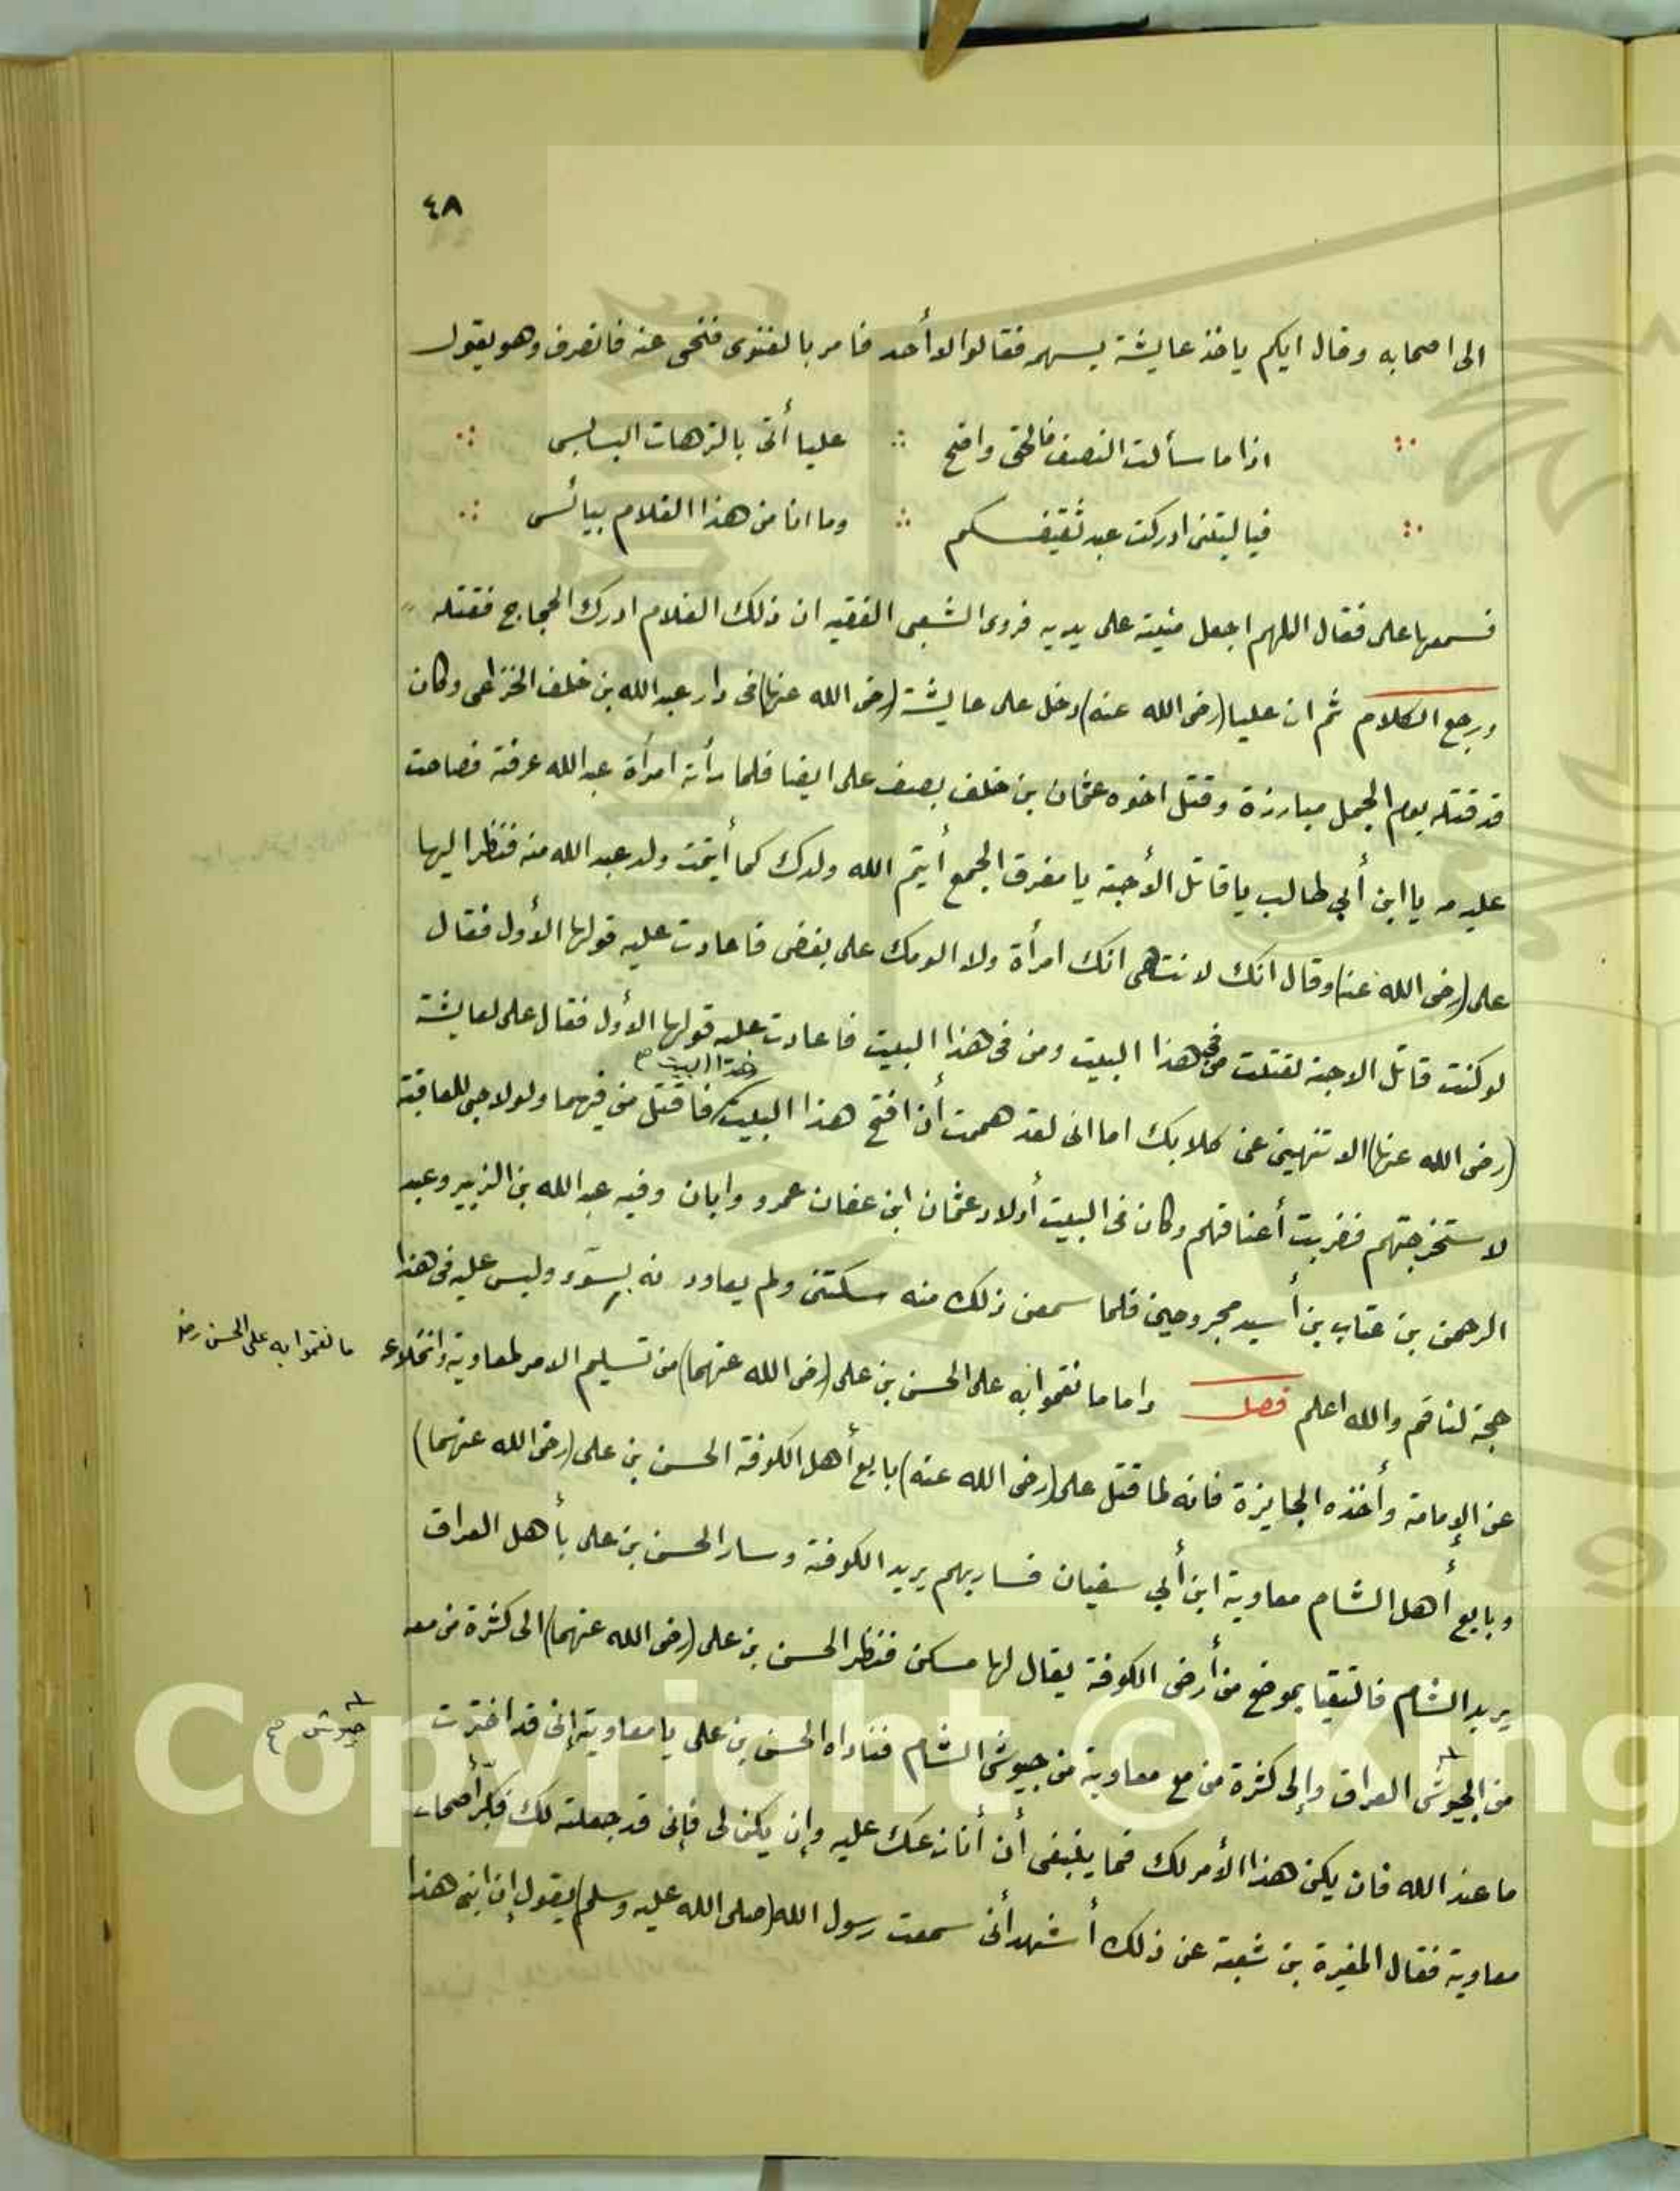 ٤٨
الى اصحابه وقال ايكم ياخذ عايشة بسهمه فقالوا لا أحد فامر بالغنوى فنحى عنه فانصرف وهو يقول
اذا ما سألت النصف فالحق واضح ∴ عليا أتى بالترهات البسابس
فيا ليتنى ادركت عبد ثقيفكم ∴ وما انا من هذا الغلام بيائس
فسمعها على فقال اللهم اجعل منيته على يديه فروى الشعبى الفقيه ان ذلك الغلام ادرك الحجاج فقتله
ورجع الكلام ثم ان عليا (رضى الله عنه) دخل على عايشة (رضى الله عنها) فى دار عبد الله بن خلف الخزاعى وكان
قد قتله يوم الجمل مبارزة وقتل اخوه عثمان بن خلف بصف على ايضا فلما رأته امرأة عبد الله عرفته فصاحت
عليه مه يا ابن أبي طالب يا قاتل الأحبة يا مفرق الجمع أيتم الله ولدك كما أيتمت ولد عبد الله منه فنظر اليها
على (رضى الله عنه) وقال انك لا تنتهى انك امرأة ولا الومك على بغضى فاعادت عليه قولها الأول فقال
لو كنت قاتل الاحبة لقتلت من فى هذا البيت ومن فى هذا البيت فاعادت عليه قولها الأول فقال على لعايشة
هذا البيت صح
(رضى الله عنها) الا تنهين عنى كلابك اما انى لقد هممت أن افتح هذا البيت فاقتل من فيهما ولولا حبى للعافية
لاستخرجتهم فضربت أعناقهم وكان فى البيت أولاد عثمان ابن عفان عمرو وابان وفيه عبد الله بن الزبير وعبد
الرحمن بن عتاب بن أسيد مجروحين فلما سمعن ذلك منه سكتن ولم يعاودنه بسوء وليس عليه فى هذا
حجة لناقم والله اعلم فصل واما ما نقموا به على الحسن بن على (رضى الله عنهما) من تسليم الامر لمعاوية وانخلاعه
ما نقموا به على الحسن رضه
عن الإمامة وأخذه الجايزة فانه لما قتل على (رضى الله عنه) بايع أهل الكوفة الحسن بن على (رضى الله عنهما)
وبايع أهل الشام معاوية ابن أبي سفيان فسار بهم يريد الكوفة وسار الحسن بن على بأهل العراق
يريد الشام فالتقيا بموضع من أرض الكوفة يقال لها مسكن فنظر الحسن بن على (رضى الله عنهما) الى كثرة من معه
من الجيوش العراق وإلى كثرة من مع معاوية من جيوش الشام فناداه الحسن بن على يا معاوية إنى قد اخترت
جيوش صح
ما عند الله فان يكن هذا الأمر لك فما ينبغى أن أنازعك عليه وإن يكن لى فإنى قد جعلته لك فكبر أصحاب
معاوية فقال المغيرة بن شعبة عن ذلك أشهد أنى سمعت رسول الله (صلى الله عليه وسلم) يقول إن ابنى هذا
Copyright © King